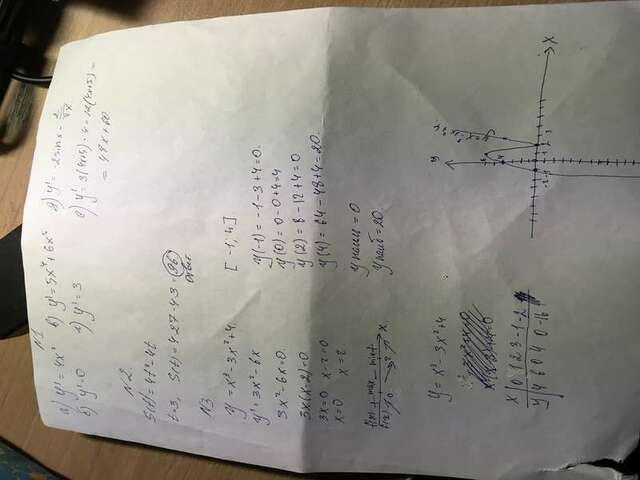 N1
а) y' = 4x³ в) y' = 5x⁴ + 6x² д) y' = 2sinx -
б) y' = 0 г) y' = 3 е) y' = 3(4x+5)·4 = 12(4x+5) =
= 48x + 60
N2
S(t) = 4t³ - 4t
t = 3, S(t) = 4·27 - 4·3 = 96
ответ
N3
y = x³ - 3x² + 4 [-1; 4]
y' = 3x² - 6x y(-1) = -1 - 3 + 4 = 0.
3x² - 6x = 0 y(0) = 0 - 0 + 4 = 4
3x(x - 2) = 0 y(2) = 8 - 12 + 4 = 0
3x = 0 x - 2 = 0 y(4) = 64 - 48 + 4 = 20.
x = 0 x = 2
y наим = 0
f'(x) + max - min + x
f(x) 0 2 y наиб = 20
y = x³ - 3x² + 4
x 0 1 2 3 -1 -2
y 4 0 4 0 -16
y
x